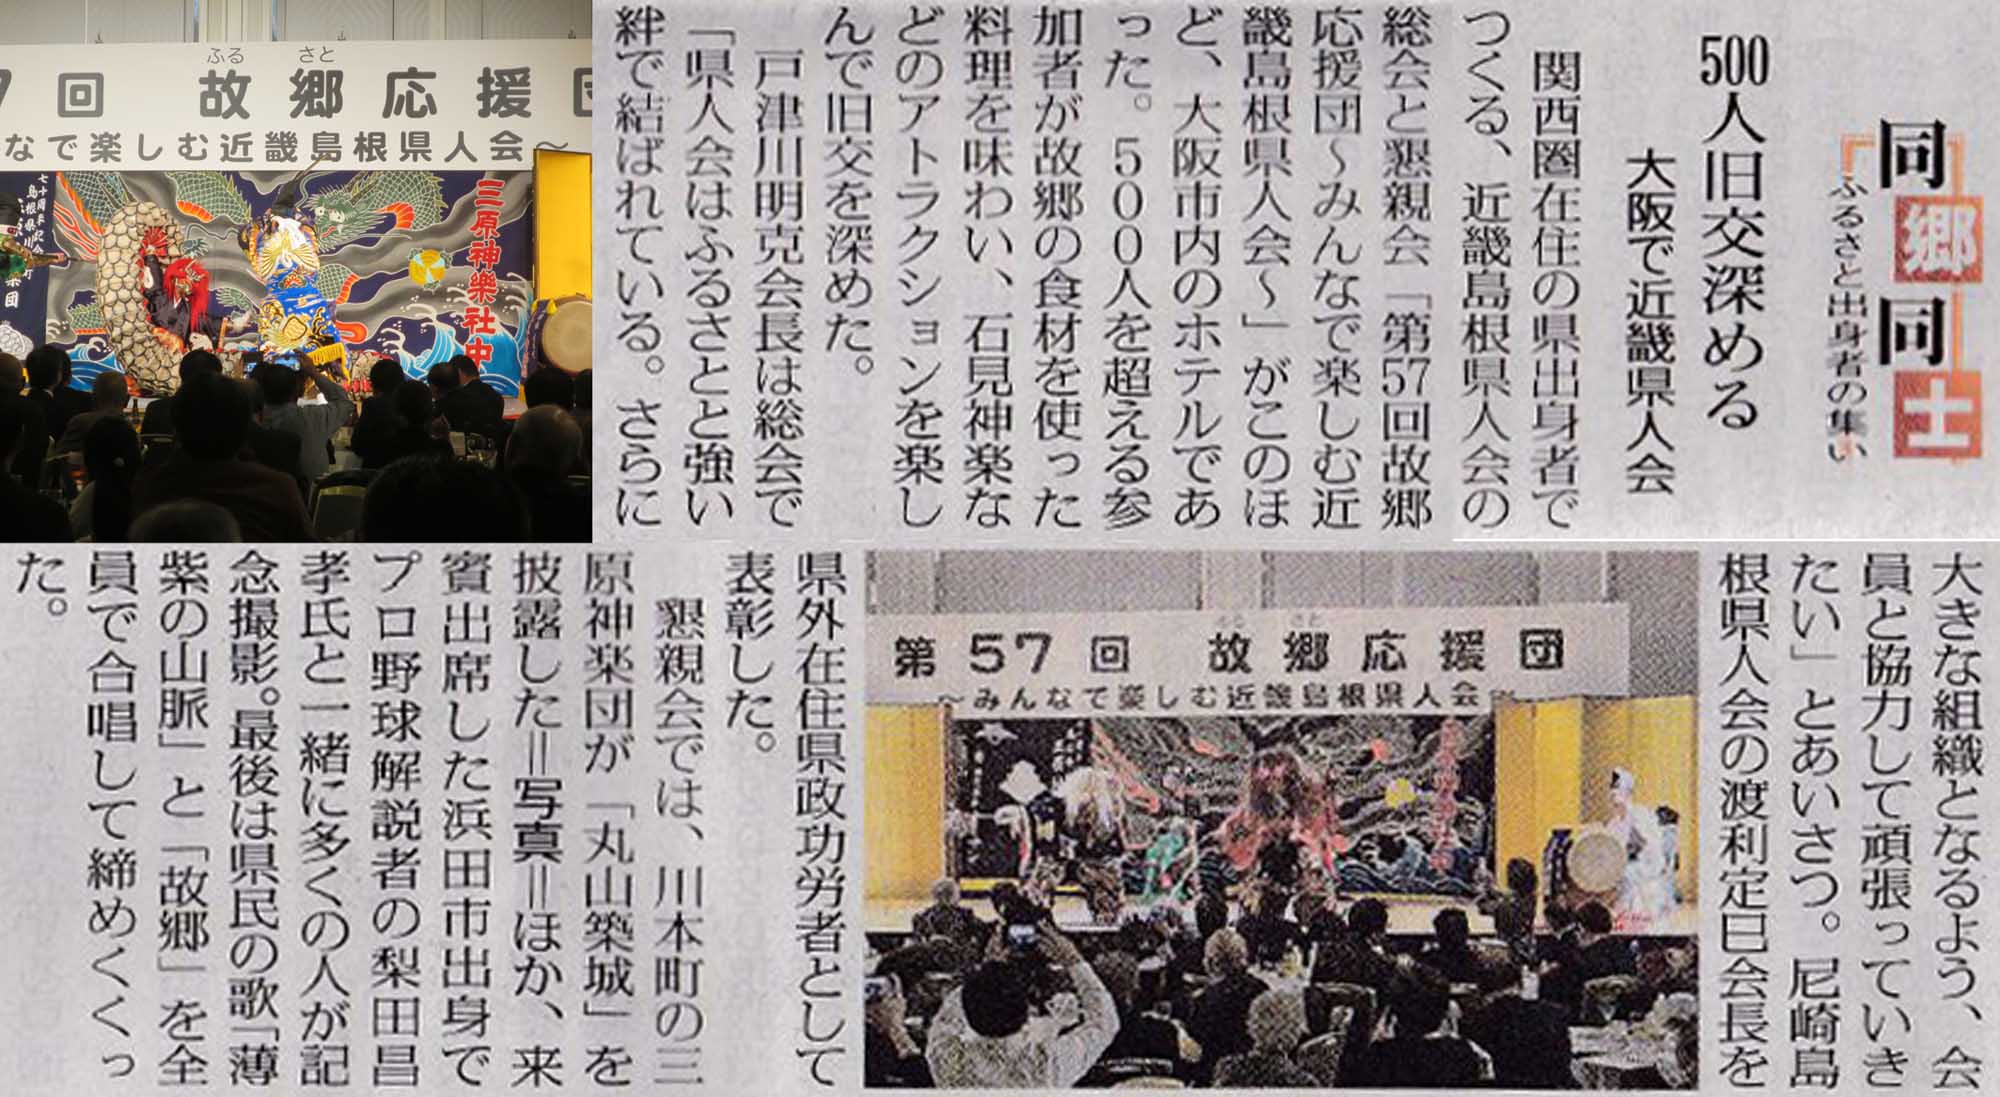 ふる さと
7回 故郷応援団
なで楽しむ近畿島根県人会～
三原神樂社中
七十周年記念
島根県川
同郷同士
ふるさと出身者の集い
500人旧交深める
大阪で近畿県人会
関西圏在住の県出身者で
つくる、近畿島根県人会の
総会と懇親会「第57回故郷
応援団～みんなで楽しむ近
畿島根県人会～」がこのほ
ど、大阪市内のホテルであ
った。500人を超える参
加者が故郷の食材を使った
料理を味わい、石見神楽な
どのアトラクションを楽し
んで旧交を深めた。
戸津川明克会長は総会で
「県人会はふるさとと強い
絆で結ばれている。さらに
大きな組織となるよう、会
員と協力して頑張っていき
たい」とあいさつ。尼崎島
根県人会の渡利定巳会長を
ふる さと
第57回 故郷応援団
～みんなで楽しむ近畿島根県人会～
県外在住県政功労者として
表彰した。
懇親会では、川本町の三
原神楽団が「丸山築城」を
披露した＝写真＝ほか、来
賓出席した浜田市出身で
プロ野球解説者の梨田昌
孝氏と一緒に多くの人が記
念撮影。最後は県民の歌「薄
紫の山脈」と「故郷」を全
員で合唱して締めくくっ
た。